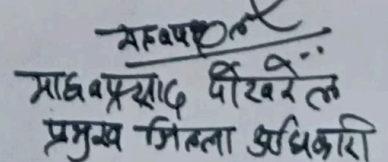 माधवप्रसाद पोखरेल
प्रमुख जिल्ला अधिकारी